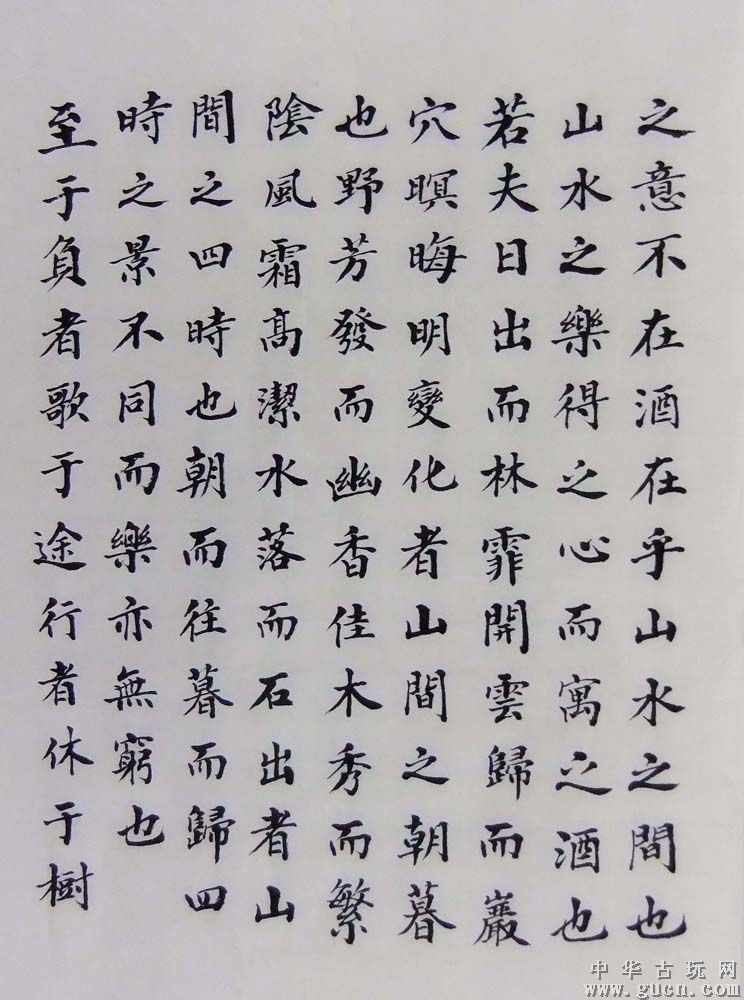 之意不在酒在乎山水之間也
山水之樂得之心而寓之酒也
若夫日出而林霏開雲歸而巖
穴暝晦明變化者山間之朝暮
也野芳發而幽香佳木秀而繁
陰風霜高潔水落而石出者山
間之四時也朝而往暮而歸四
時之景不同而樂亦無窮也
至于負者歌于途行者休于樹
中华古玩网
www.gucn.com